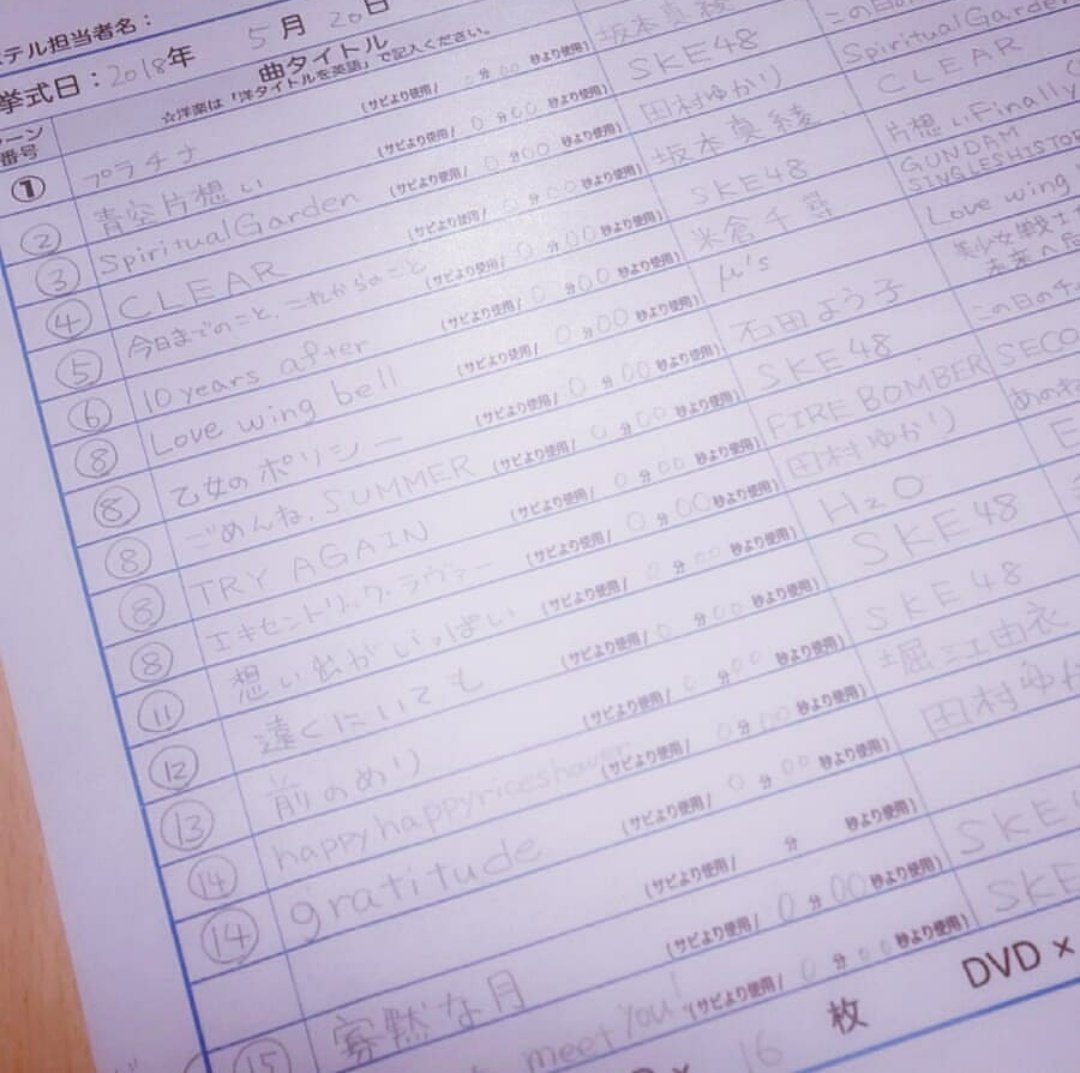 テル担当者名：
挙式日：2018年 5月 20日
番号
曲タイトル
☆洋楽は「洋タイトルを英語」で記入ください。
① プラチナ (サビより使用/ 0分00秒より使用) 坂本真綾 この日の
② 青空片想い (サビより使用/ 0分00秒より使用) SKE48
③ SpiritualGarden (サビより使用/ 0分00秒より使用) 田村ゆかり SpiritualGarden
④ CLEAR (サビより使用/ 0分00秒より使用) 坂本真綾 CLEAR
⑤ 今日までのこと、これからのこと (サビより使用/ 0分00秒より使用) SKE48 片想いFinally
⑥ 10years after (サビより使用/ 0分00秒より使用) 米倉千尋 GUNDAM SINGLESHISTOR
⑧ Love wing bell (サビより使用/ 0分00秒より使用) μ's Love wing
⑧ 乙女のポリシー (サビより使用/ 0分00秒より使用) 石田よう子 美少女戦士
⑧ ごめんね、SUMMER (サビより使用/ 0分00秒より使用) SKE48 この日のチ
⑧ TRY AGAIN (サビより使用/ 0分00秒より使用) FIRE BOMBER SECO
⑧ エキセントリック・ラヴァー (サビより使用/ 0分00秒より使用) 田村ゆかり あのね
⑪ 想い出がいっぱい (サビより使用/ 0分00秒より使用) H2O E
⑫ 遠くにいても (サビより使用/ 0分00秒より使用) SKE48
⑬ 前のめり (サビより使用/ 0分00秒より使用) SKE48
⑭ happyhappyriceshower (サビより使用/ 0分00秒より使用) 堀江由衣
⑭ gratitude (サビより使用/ 0分00秒より使用) 田村ゆか
(サビより使用/ 分 秒より使用)
⑮ 寡黙な月 (サビより使用/ 0分00秒より使用) SKE4
meet you! (サビより使用/ 0分00秒より使用) SKE
× 16 枚 DVD ×